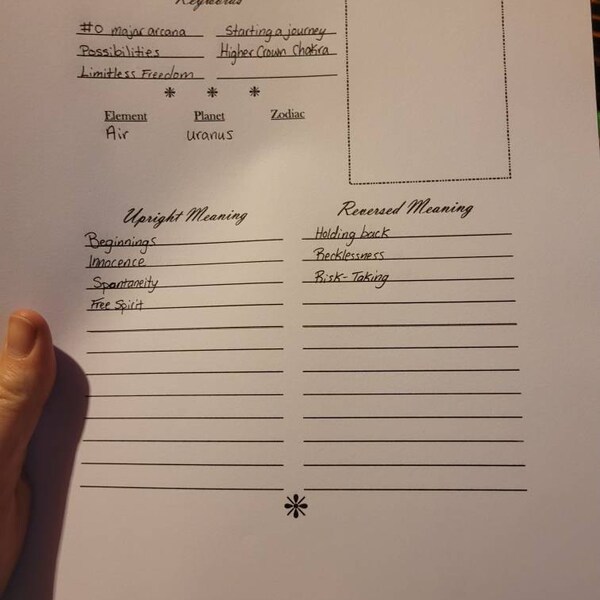 Keywords
#0 major arcana Starting a journey
Possibilities Higher Crown Chakra
Limitless Freedom
Element Planet Zodiac
Air Uranus
Upright Meaning Reversed Meaning
Beginnings Holding back
Innocence Recklessness
Spontaneity Risk-Taking
Free Spirit